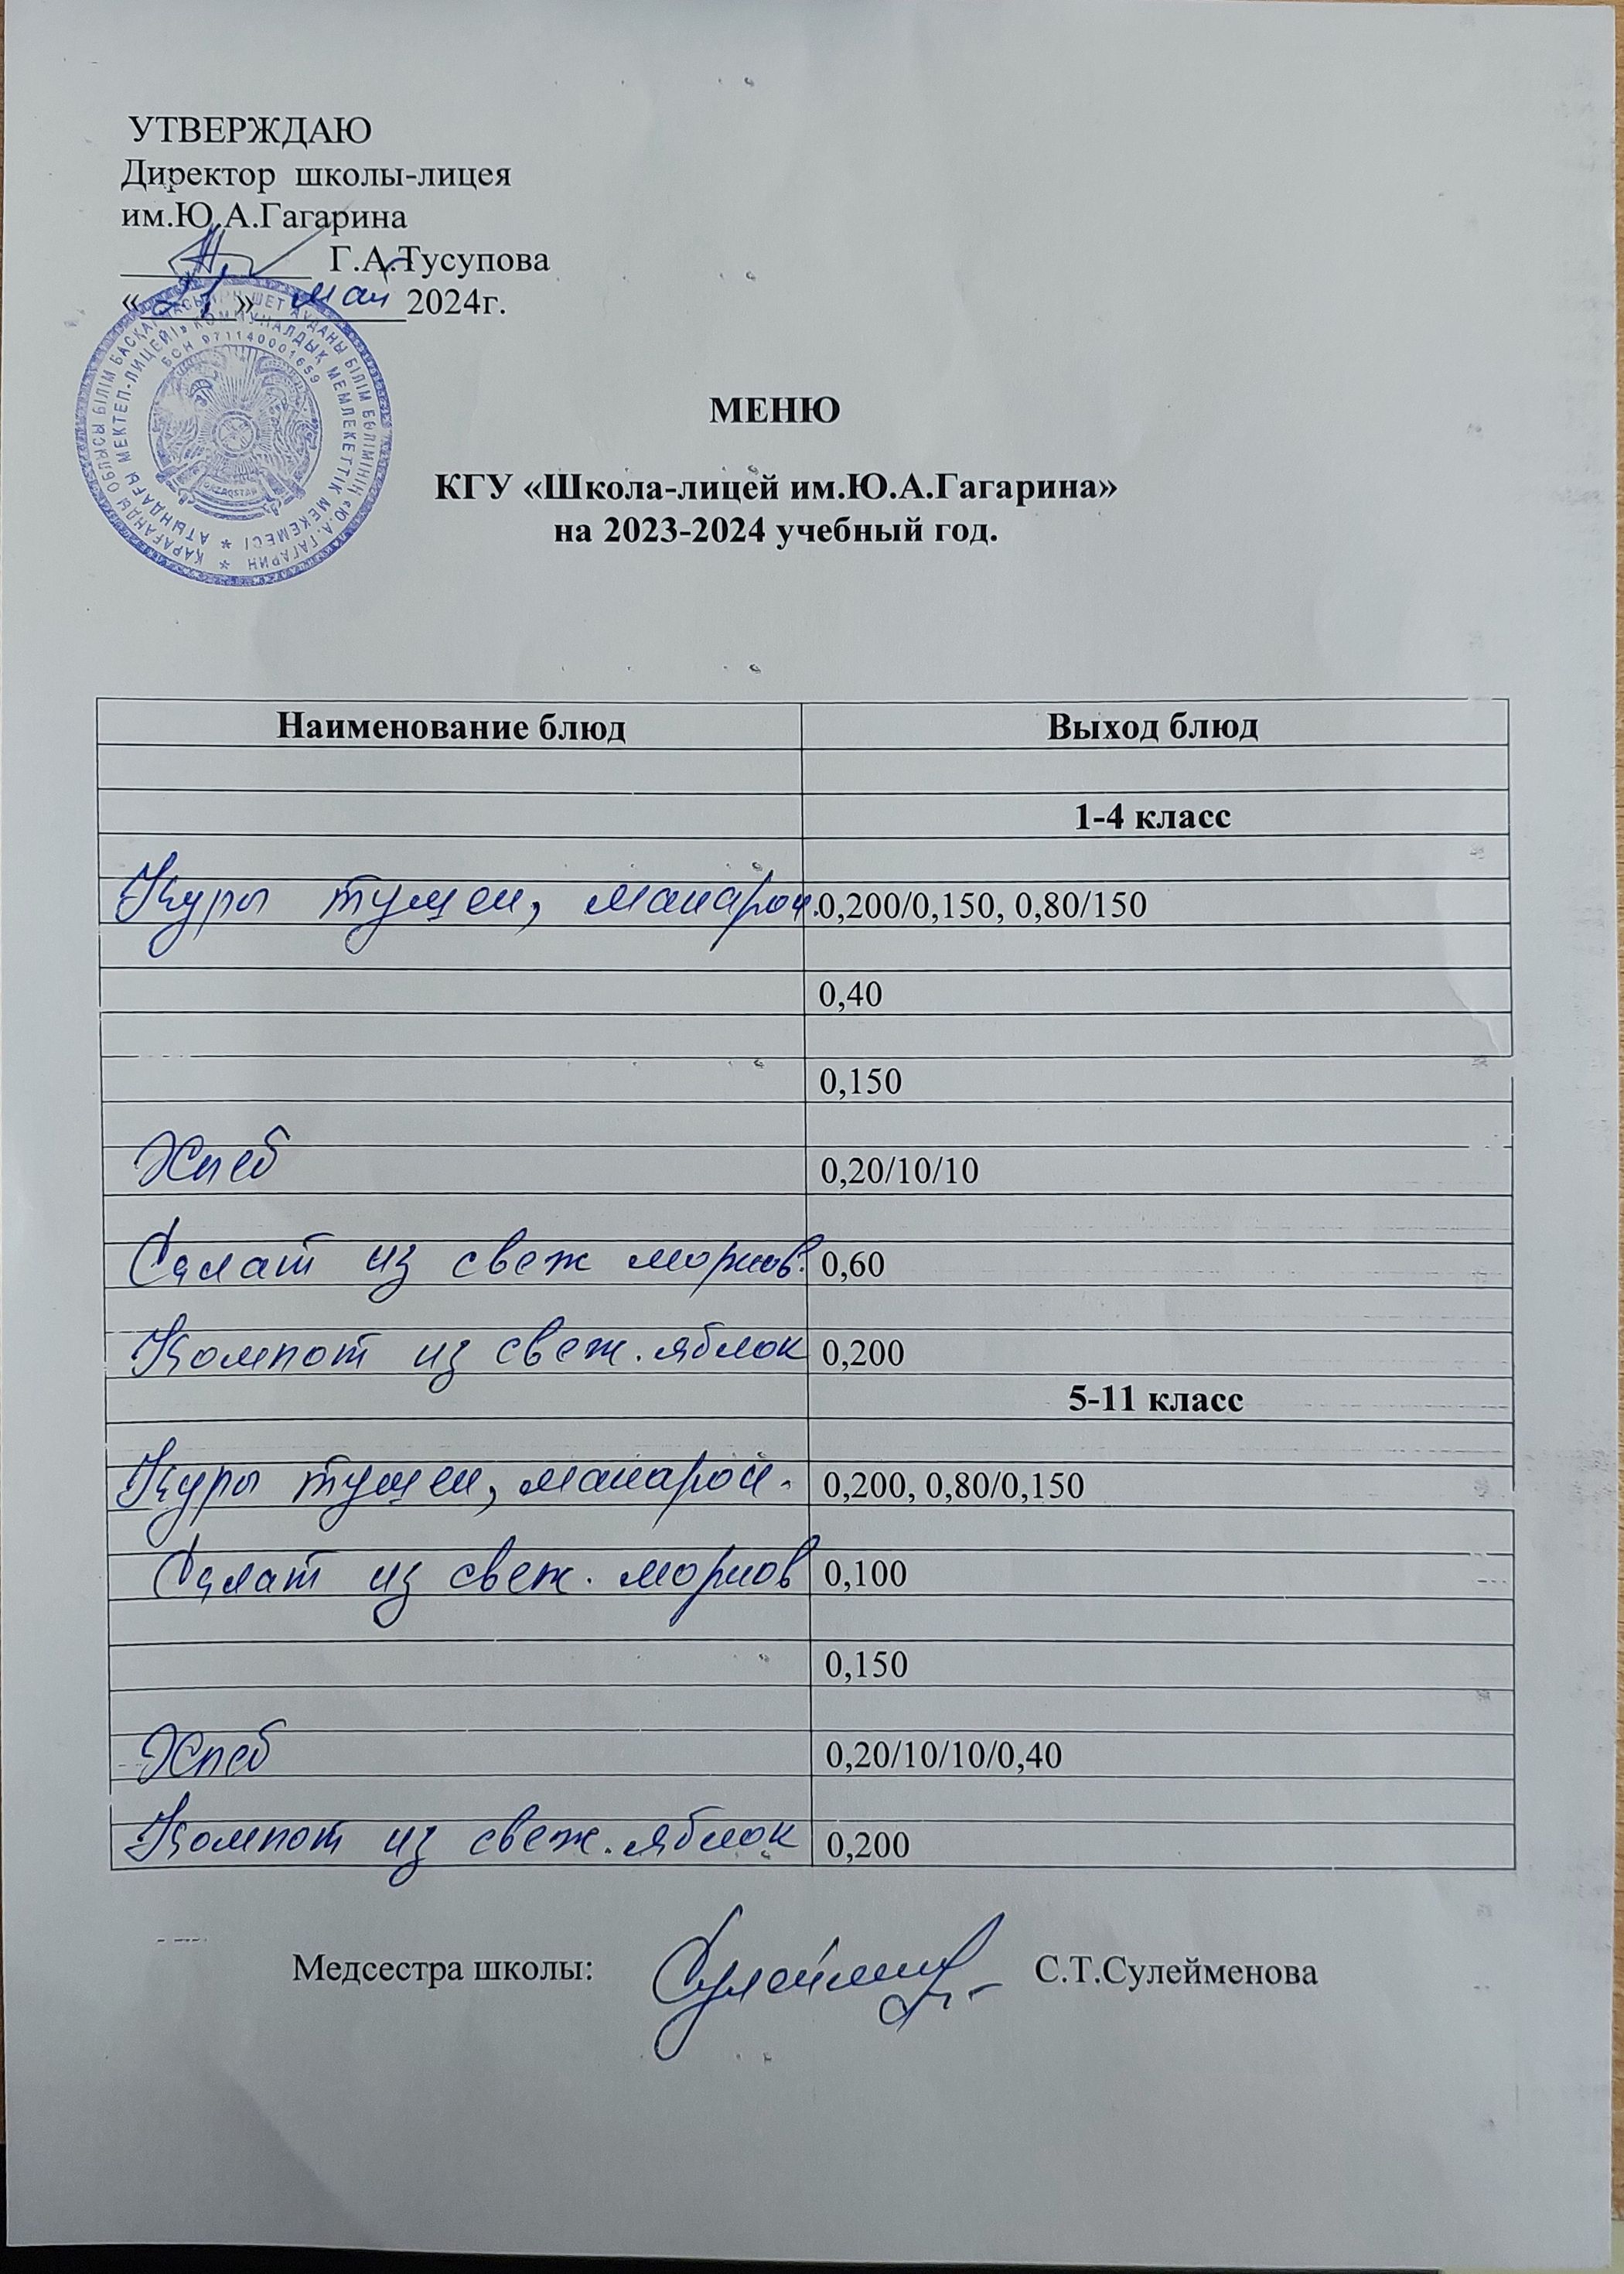 УТВЕРЖДАЮ
Директор школы-лицея
им.Ю.А.Гагарина
Г.А.Тусупова
«21» май 2024г.
ҚАРАҒАНДЫ ОБЛЫСЫ БІЛІМ БАСҚАРМАСЫНЫҢ ШЕТ АУДАНЫ БІЛІМ БӨЛІМІНІҢ «Ю.А. ГАГАРИН
АТЫНДАҒЫ МЕКТЕП-ЛИЦЕЙІ» КОММУНАЛДЫҚ МЕМЛЕКЕТТІК МЕКЕМЕСІ
БСН 971140001659
QAZAQSTAN
МЕНЮ
КГУ «Школа-лицей им.Ю.А.Гагарина»
на 2023-2024 учебный год.
Наименование блюд Выход блюд
1-4 класс
Куры тушен, макарон. 0,200/0,150, 0,80/150
0,40
0,150
Хлеб 0,20/10/10
Салат из свеж морков. 0,60
Компот из свеж. яблок 0,200
5-11 класс
Куры тушен, макарон. 0,200, 0,80/0,150
Салат из свеж. морков 0,100
0,150
Хлеб 0,20/10/10/0,40
Компот из свеж. яблок 0,200
Медсестра школы: С.Т.Сулейменова